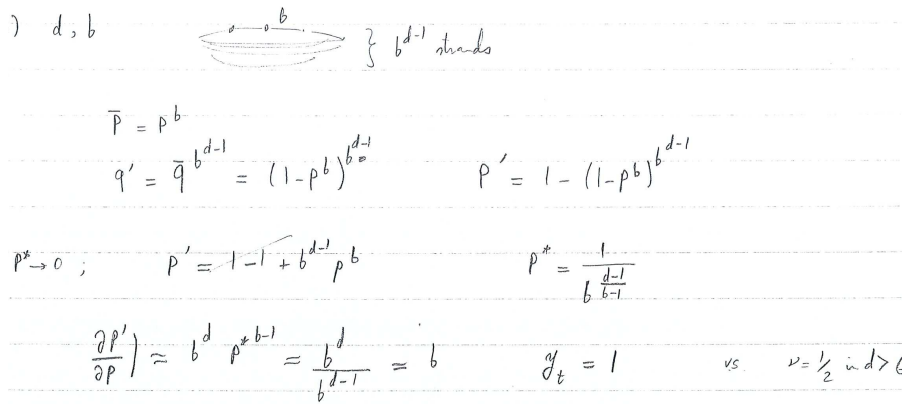 ) d, b
b
} b^{d-1} strands
p̄ = p^b
q' = q̄^{b^{d-1}} = (1-p^b)^{b^{d-1}} p' = 1 - (1-p^b)^{b^{d-1}}
p* → 0 ; p' = 1 - 1 + b^{d-1} p^b p* = 1 / b^{\frac{d-1}{b-1}}
∂p'/∂p ) ≈ b^d p*^{b-1} = b^d / b^{d-1} = b y_t = 1 vs ν = 1/2 in d>6